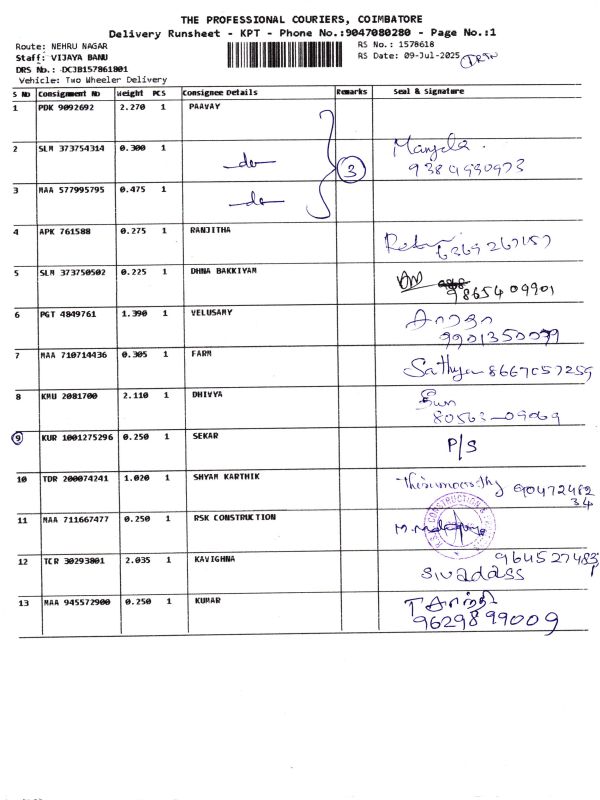 THE PROFESSIONAL COURIERS, COIMBATORE
Delivery Runsheet - KPT - Phone No.:9047080280 - Page No.:1
Route: NEHRU NAGAR RS No.: 1578618
Staff: VIJAYA BANU RS Date: 09-Jul-2025
DRS No.: DCJB157861801
Vehicle: Two Wheeler Delivery
S No Consignment No Weight PCS Consignee Details Remarks Seal & Signature
1 PDK 9092692 2.270 1 PAAVAY
2 SLM 373754314 0.300 1 -do- 3 Manjula.
3 MAA 577995795 0.475 1 -do-
4 APK 761588 0.275 1 RANJITHA
5 SLM 373750502 0.225 1 DHNA BAKKIYAM 98654 09901
6 PGT 4849761 1.390 1 VELUSAMY
9901350079
7 MAA 710714436 0.305 1 FARM Sathya 8667057259
8 KMU 2081700 2.110 1 DHIVYA
80563-09069
9 KUR 1001275296 0.250 1 SEKAR P/S
10 TDR 200074241 1.020 1 SHYAM KARTHIK Thirumoorthy 90472482
34
11 MAA 711667477 0.250 1 RSK CONSTRUCTION
12 TCR 30293801 2.035 1 KAVIGHNA
sivadass
13 MAA 945572900 0.250 1 KUMAR
9629899009